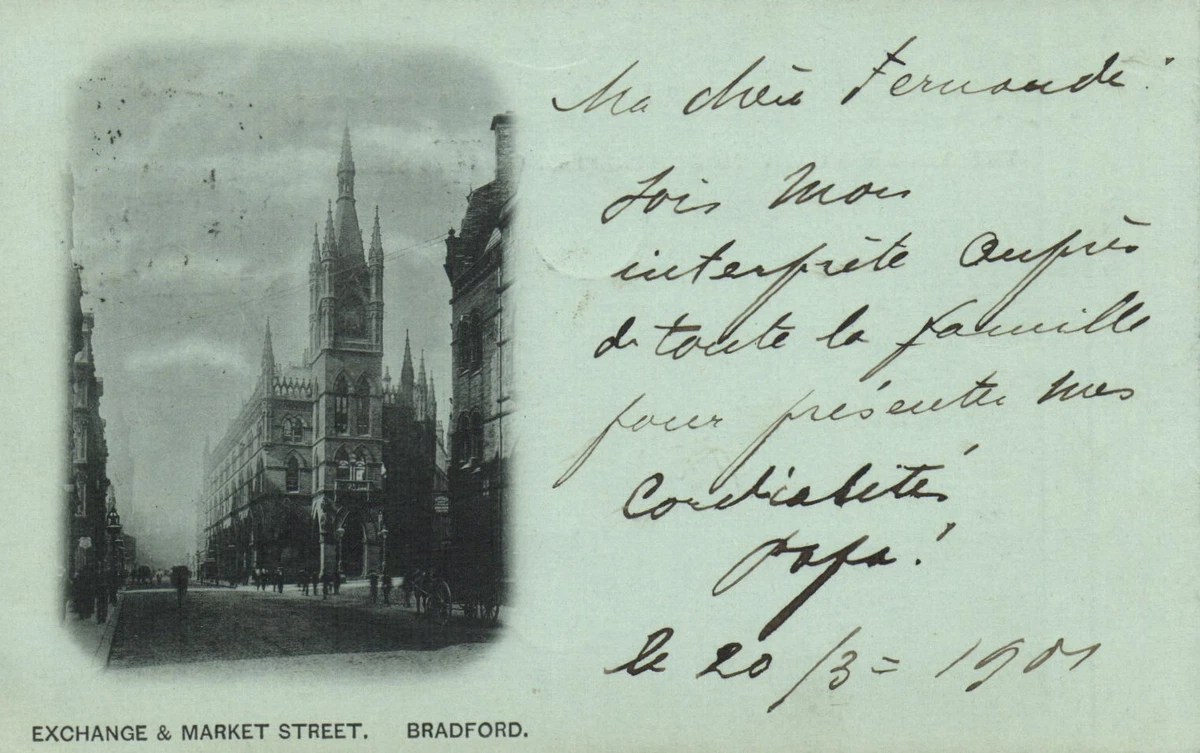 Ma chère Fernande
Sois mon
interprète auprès
de toute la famille
pour présenter mes
Cordialités
Papa!
le 20/3 = 1901
EXCHANGE & MARKET STREET. BRADFORD.